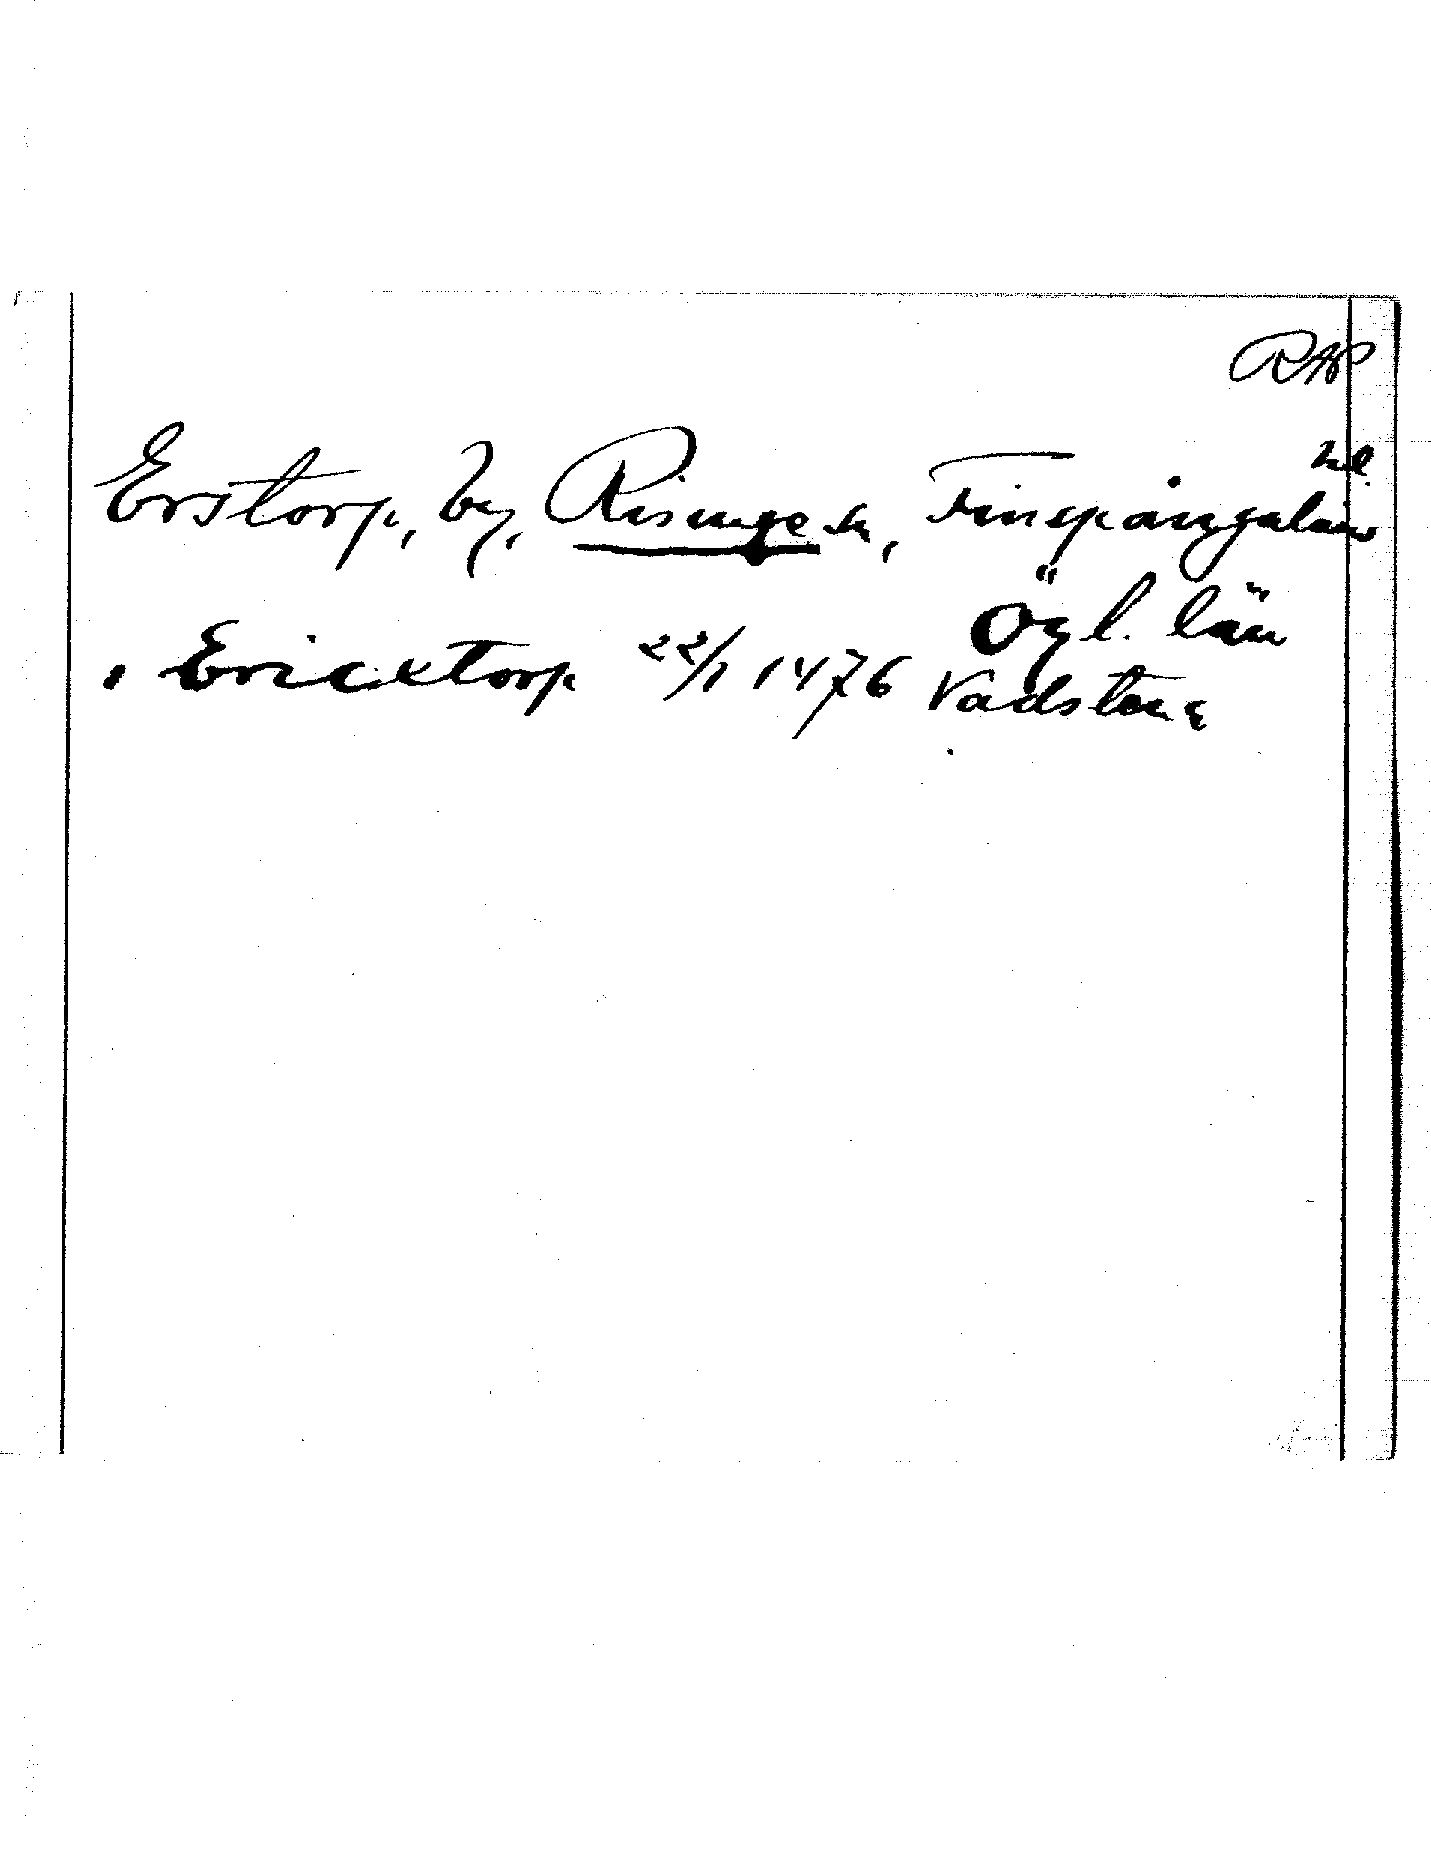 RAP
Erstorp, by, Risinge sn, Finspångaläns hd.
Ögl. län
, Ericxtorp 22/1 1476 Vadstena